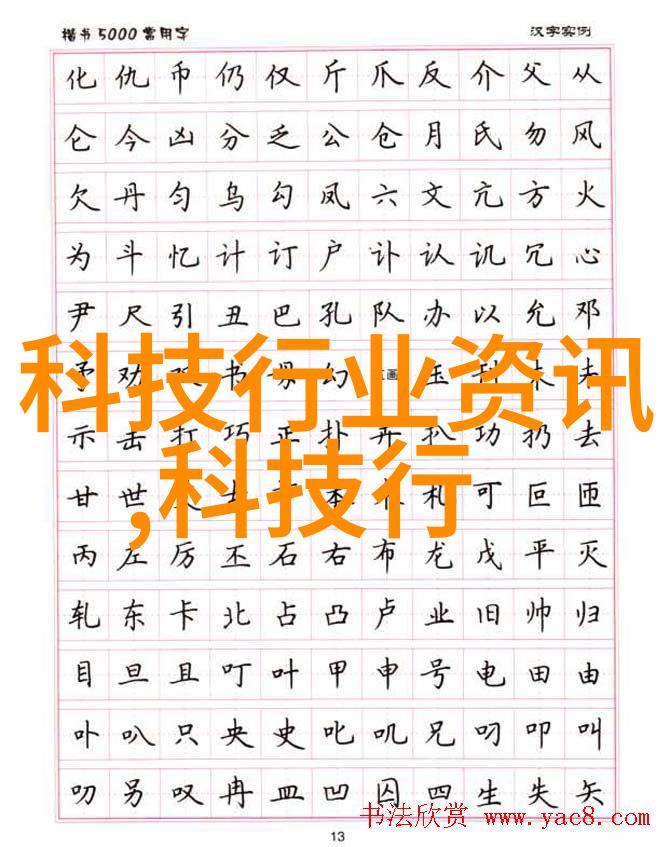 楷书5000常用字 汉字实例
化仇币仍仅斤爪反介父从
仑今凶分乏公仓月氏勿风
欠丹匀乌勾凤六文亢方火
为斗忆计订户讣认讥冗心
尹尺引丑巴孔队办以允邓
予劝双书毋幻 五画 玉刊末未
科技行业资讯
示击打巧正扑开扒功扔去
,科技行
甘世 本 札可叵匝
丙左厉丕石右布龙戊平灭
轧东卡北占凸卢业旧帅归
目旦且叮叶甲申号电田由
卟叭只央史叱叽兄叼叩叫
叨另叹冉皿凹囚四生失矢
书法欣赏 www.yac8.com
13